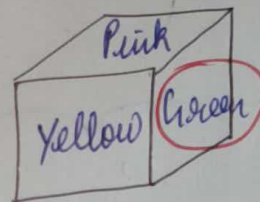 Pink
Yellow Green